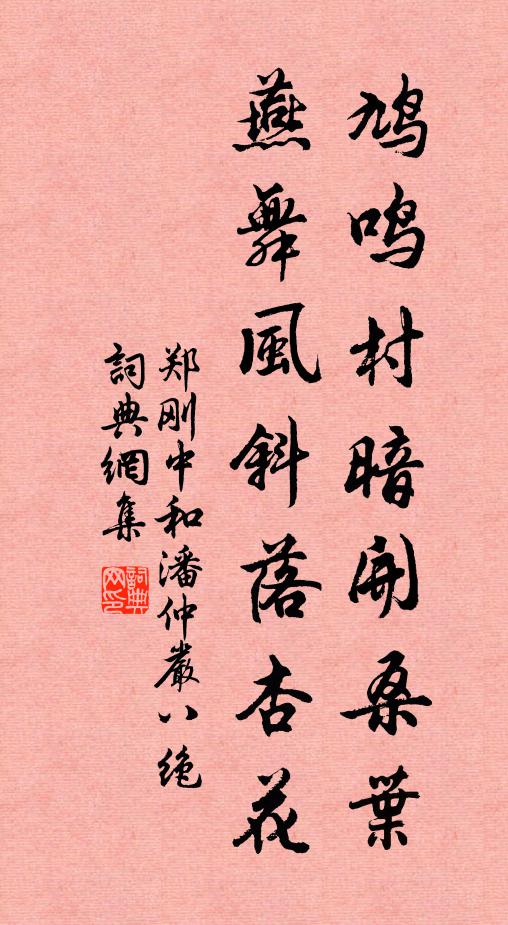 鸠鸣村暗開桑葉
燕舞風斜落杏花
郑刚中和潘仲嚴八绝
詞典網集
詞典网印